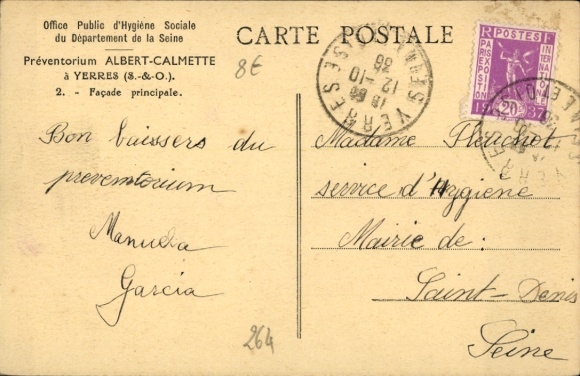 Office Public d'Hygiène Sociale
du Département de la Seine
Préventorium ALBERT-CALMETTE
à YERRES (S.-&-O.).
2. - Façade principale.
CARTE POSTALE
8E
YERRES
12-10
36
RF POSTES
PARIS EXPOSITION
INTERNATIONALE
19 20c 37
Bon baisers du
preventorium
Manuela
Garcia
264
Madame
service d'Hygiene
Mairie de:
Saint-Denis
Seine